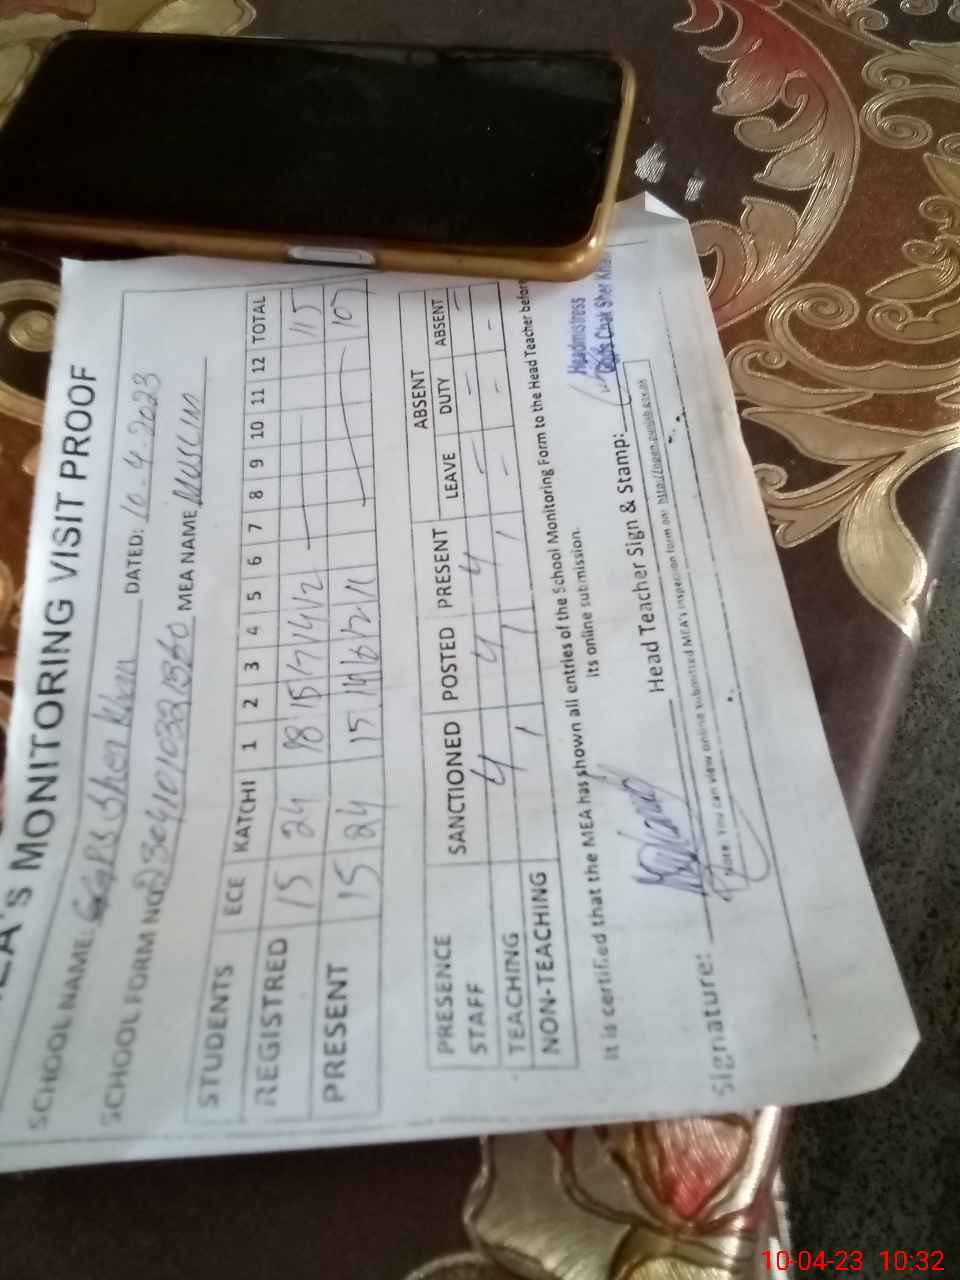 MEA's MONITORING VISIT PROOF
SCHOOL NAME: GGPS Sher Khan DATED: 10-4-2023
SCHOOL FORM NO. MEA NAME MUSLIM
STUDENTS ECE KATCHI 1 2 3 4 5 6 7 8 9 10 11 12 TOTAL
REGISTRED 15 24 18 15 17 14 12 115
PRESENT 15 24 15 14 16 12 11 107
PRESENCE STAFF SANCTIONED POSTED PRESENT LEAVE ABSENT DUTY ABSENT
TEACHING 4 4 4 - - -
NON-TEACHING 1 1 1 - - -
It is certified that the MEA has shown all entries of the School Monitoring Form to the Head Teacher before
its online submission.
Headmistress
GGPS Chak Sher Khan
Signature: Head Teacher Sign & Stamp:
Note You can view online submitted MEA's inspection form on:
10-04-23 10:32